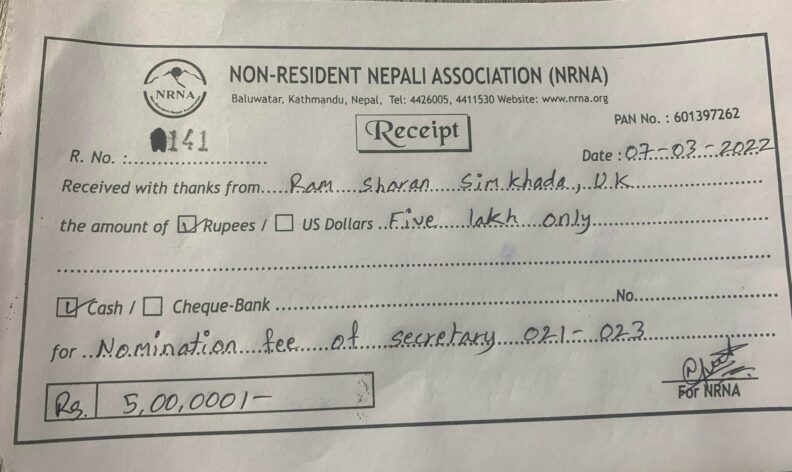 NRNA
NON-RESIDENT NEPALI ASSOCIATION (NRNA)
Baluwatar, Kathmandu, Nepal, Tel: 4426005, 4411530 Website: www.nrna.org
PAN No. : 601397262
Receipt
R. No. : 141
Date : 07-03-2022
Received with thanks from Ram Sharan Simkhada, U.K
the amount of Rupees / US Dollars Five lakh only
Cash / Cheque-Bank No.
for Nomination fee of secretary 021-023
Rs. 5,00,000/-
For NRNA